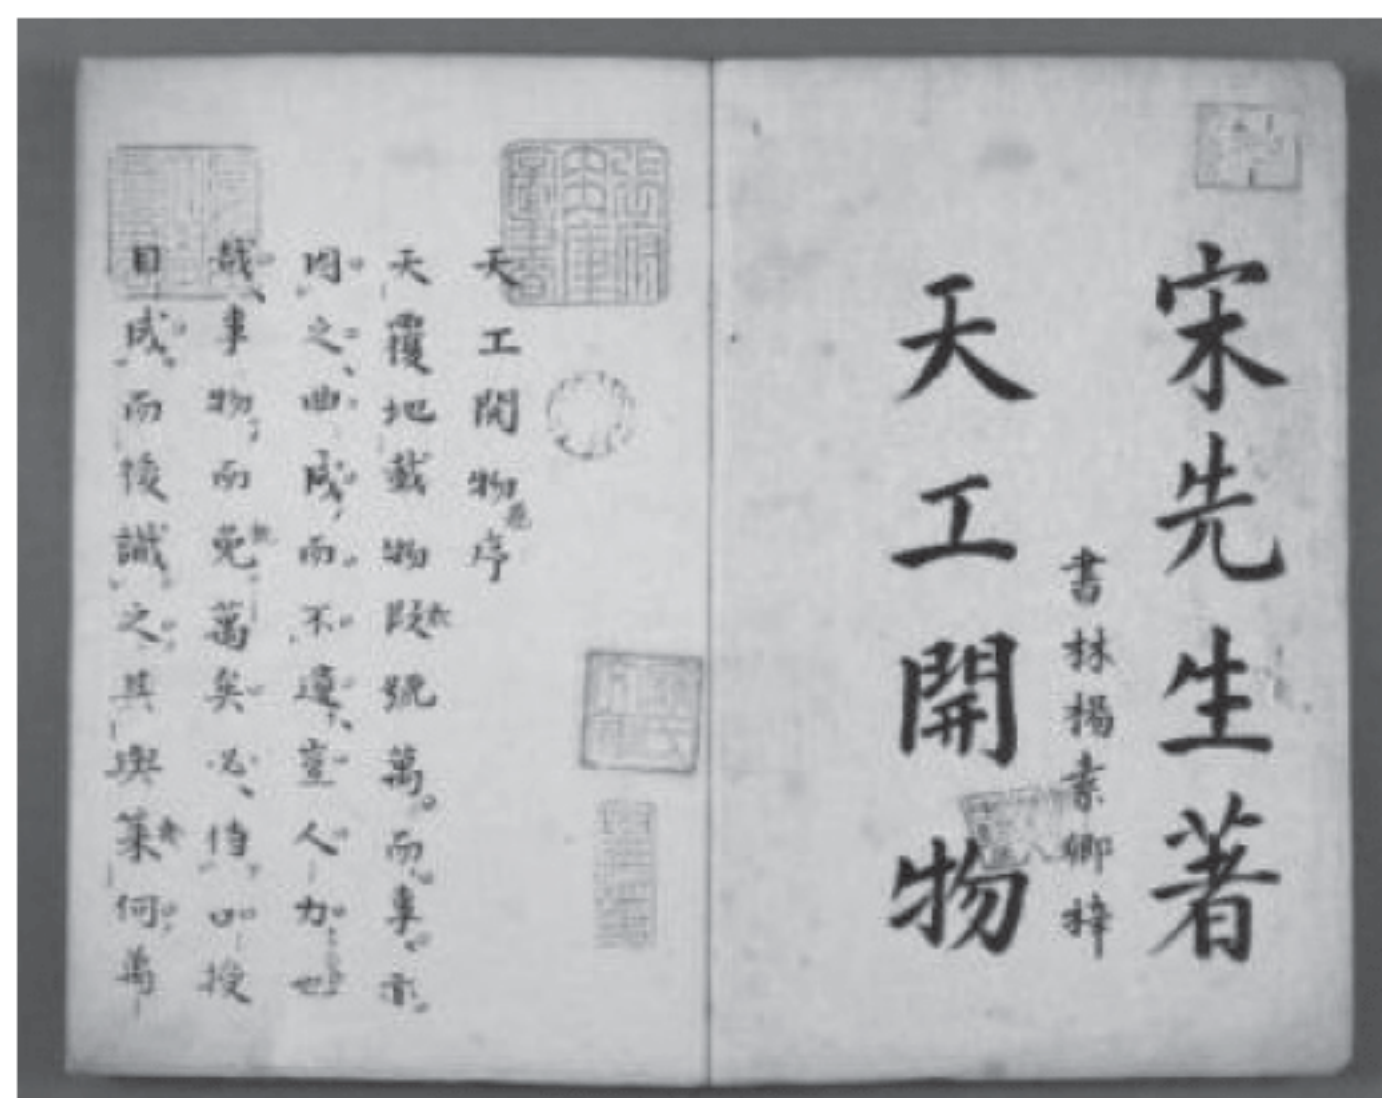 宋先生著
書林楊素卿梓
天工開物
天工開物序
天覆地載物段號萬而事亦
因之曲成而不遺豈人力也
哉事物而免萬矣必待口授
目成而後識之其與策何萬